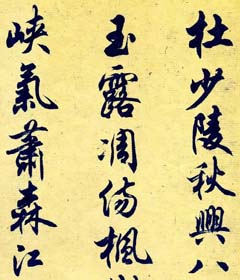 杜少陵秋興八
玉露凋傷楓
峽氣蕭森江